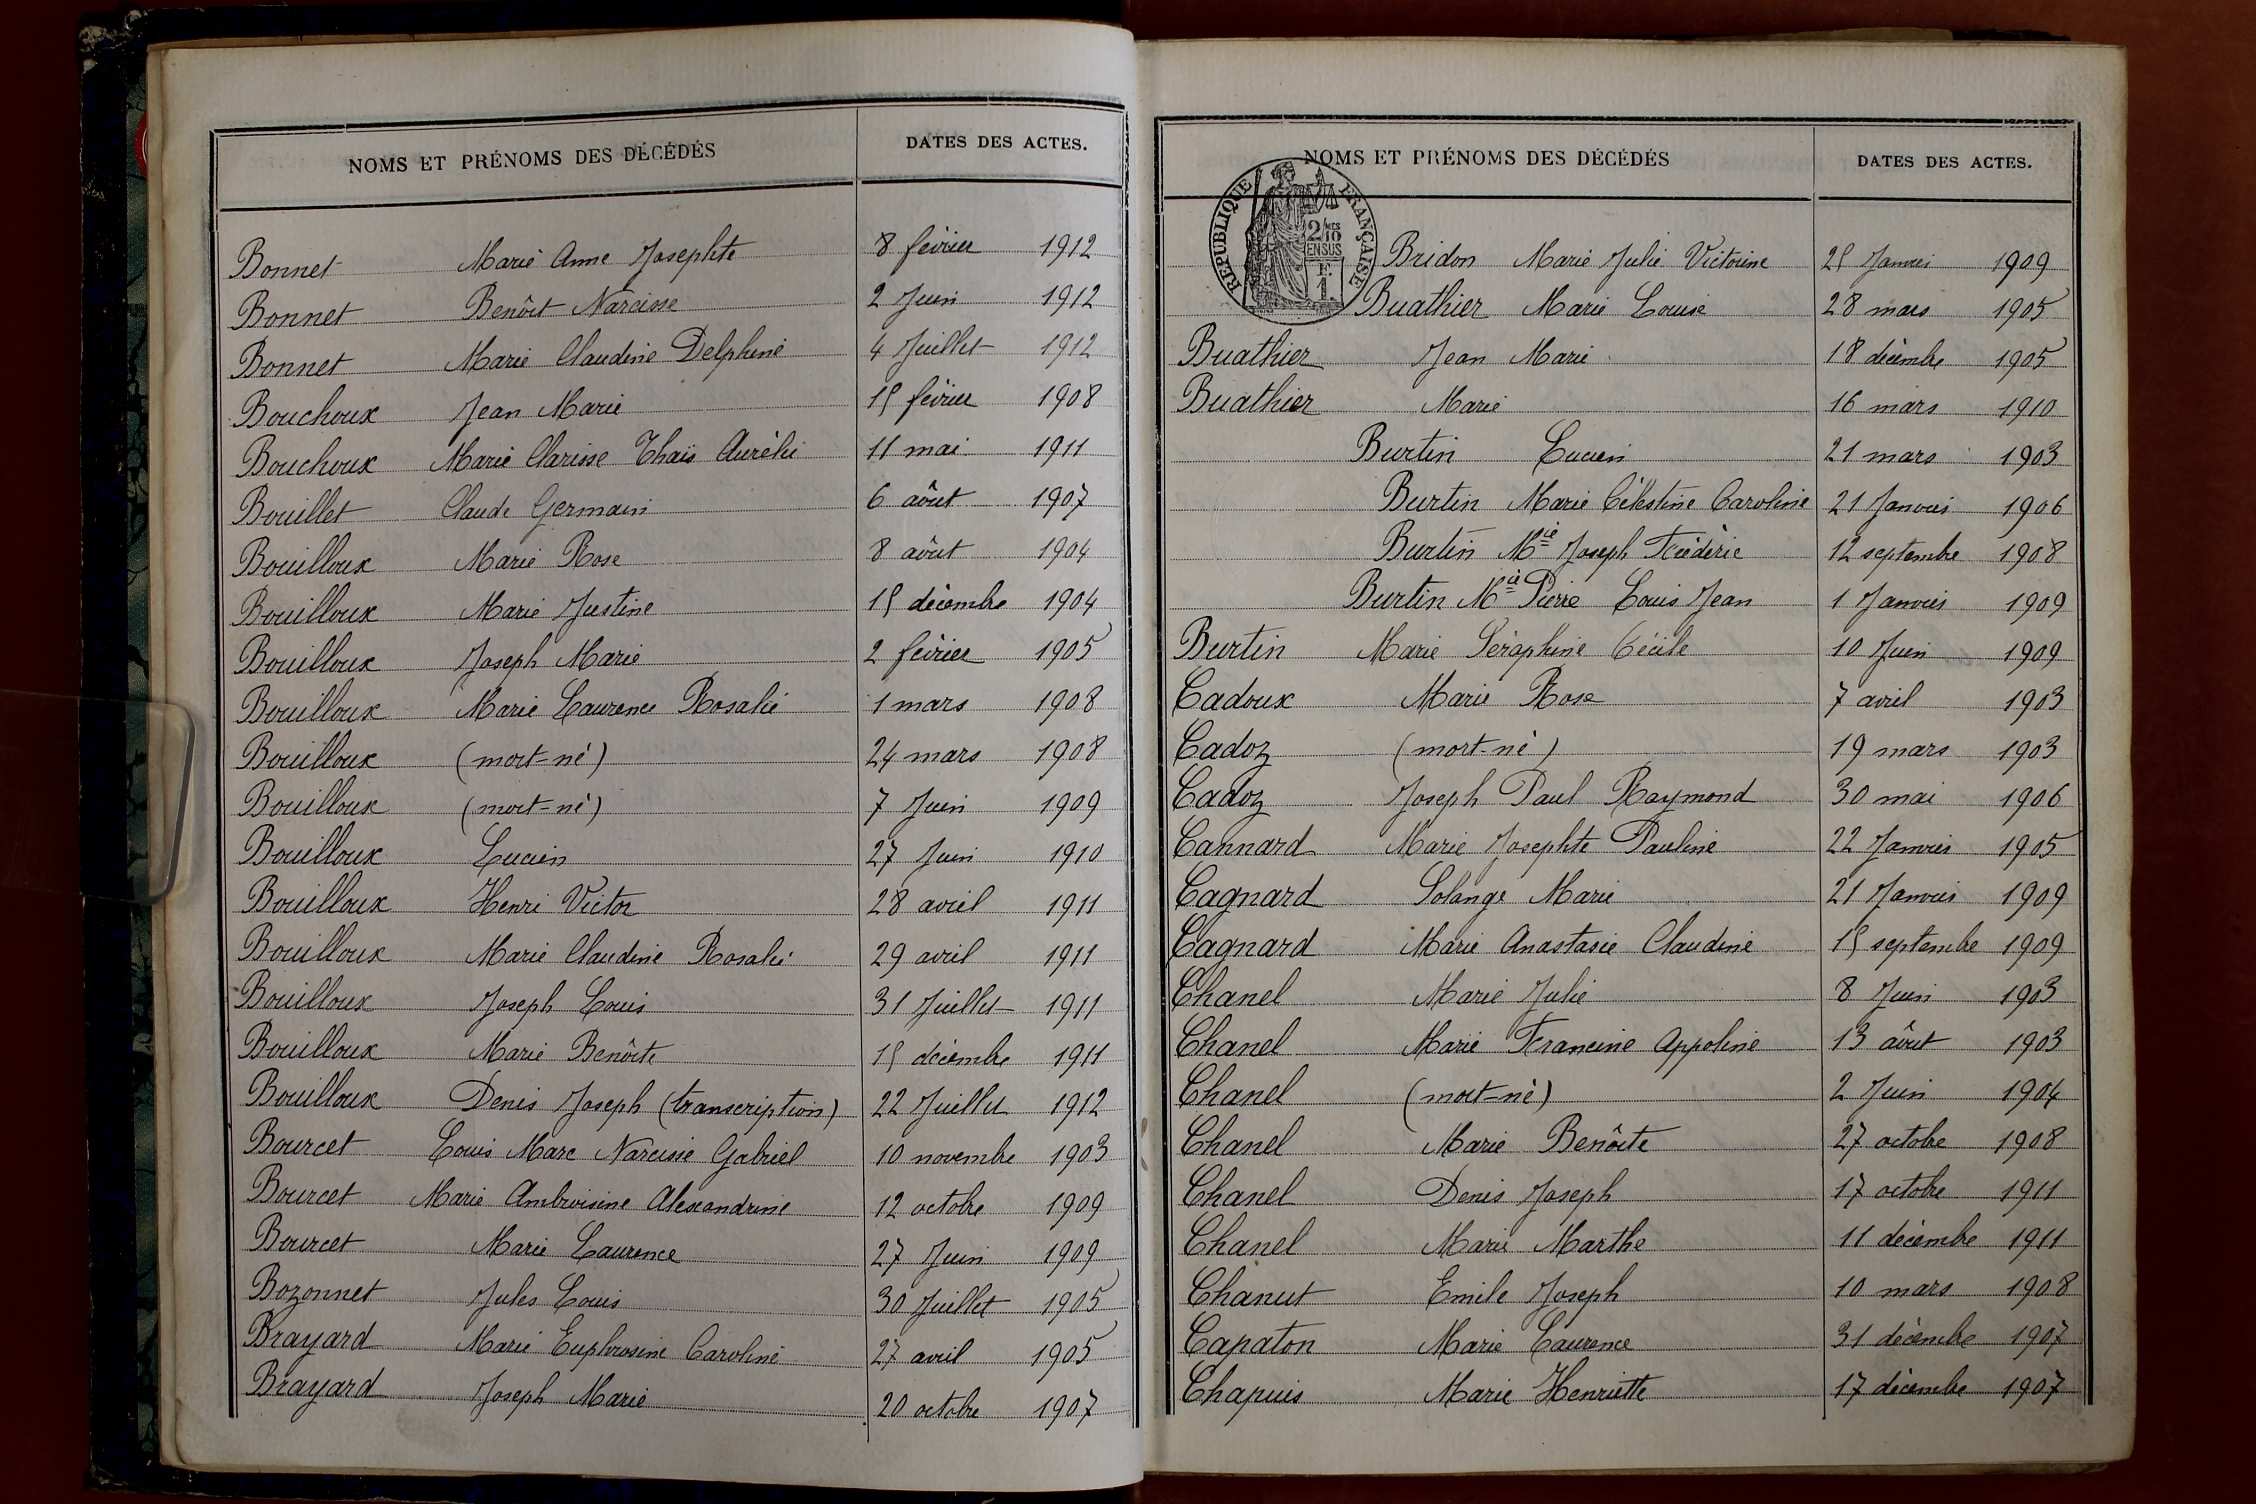 NOMS ET PRÉNOMS DES DÉCÉDÉS DATES DES ACTES.
Bonnet Marie Anne Josephte 8 février 1912
Bonnet Benôit Narcisse 2 Juin 1912
Bonnet Marie Claudine Delphine 4 Juillet 1912
Bouchoux Jean Marie 15 février 1908
Bouchoux Marie Clarisse Thaïs Aurélie 11 mai 1911
Bouillet Claude Germain 6 aôut 1907
Bouilloux Marie Rose 8 aôut 1904
Bouilloux Marie Justine 15 décembre 1904
Bouilloux Joseph Marie 2 février 1905
Bouilloux Marie Laurence Rosalie 1 mars 1908
Bouilloux (mort=né) 24 mars 1908
Bouilloux (mort=né) 7 Juin 1909
Bouilloux Lucien 27 Juin 1910
Bouilloux Henri Victor 28 avril 1911
Bouilloux Marie Claudine Rosalie 29 avril 1911
Bouilloux Joseph Louis 31 Juillet 1911
Bouilloux Marie Benôite 15 décembre 1911
Bouilloux Denis Joseph (transcription) 22 Juillet 1912
Bourcet Louis Marc Narcisse Gabriel 10 novembre 1903
Bourcet Marie Ambroisine Alexandrine 12 octobre 1909
Bourcet Marie Laurence 27 Juin 1909
Bozonnet Jules Louis 30 Juillet 1905
Brayard Marie Euphrosine Caroline 27 avril 1905
Brayard Joseph Marie 20 octobre 1907
NOMS ET PRÉNOMS DES DÉCÉDÉS DATES DES ACTES.
REPUBLIQUE FRANÇAISE
2/10 MES
EN SUS
F.
1.
Bridon Marie Julie Victorine 25 Janvier 1909
Buathier Marie Louise 28 mars 1905
Buathier Jean Marie 18 décembre 1905
Buathier Marie 16 mars 1910
Burtin Lucien 21 mars 1903
Burtin Marie Célestine Caroline 21 Janvier 1906
Burtin Mie Joseph Frédéric 12 septembre 1908
Burtin Mie Pierre Louis Jean 1 Janvier 1909
Burtin Marie Séraphine Cécile 10 Juin 1909
Cadoux Marie Rose 7 avril 1903
Cadoz (mort-né) 19 mars 1903
Cadoz Joseph Paul Raymond 30 mai 1906
Cannard Marie Josephte Pauline 22 Janvier 1905
Cagnard Solange Marie 21 Janvier 1909
Cagnard Marie Anastasie Claudine 15 septembre 1909
Chanel Marie Julie 8 Juin 1903
Chanel Marie Francine Appoline 13 âout 1903
Chanel (mort=né) 2 Juin 1904
Chanel Marie Benôite 27 octobre 1908
Chanel Denis Joseph 17 octobre 1911
Chanel Marie Marthe 11 décembre 1911
Chanut Emile Joseph 10 mars 1908
Capaton Marie Laurence 31 décembre 1907
Chapuis Marie Henriette 17 décembre 1907